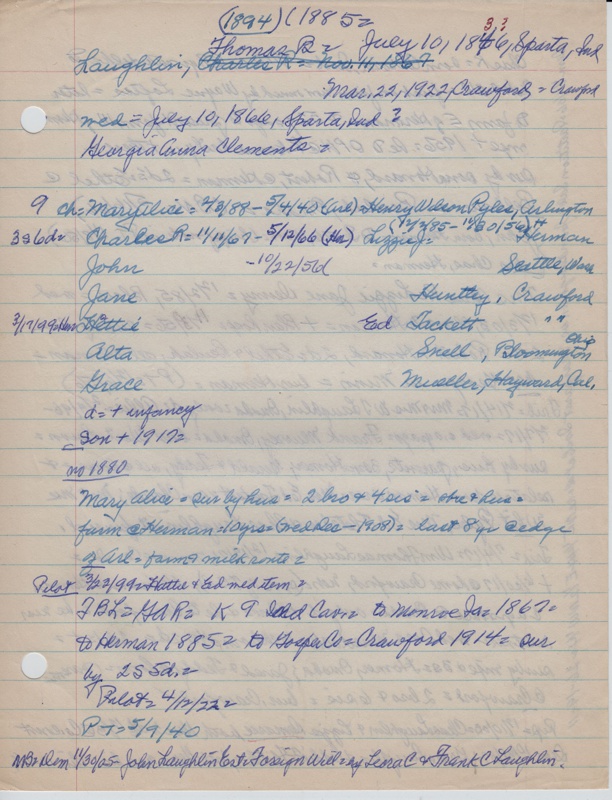 (1894) (1885=
3?
Thomas B= July 10, 1846, Sparta, Ind
Laughlin, Charles R= Nov. 11, 1867
Mar, 22, 1922, Crawford, = Crawford
med = July 10, 1866, Sparta, Ind ?
Georgia Anna Clements =
9 ch= Mary Alice = 2/8/88 - 5/4/40 (Arl) Henry Wilson Pyles, Arlington
3s6d= Charles R= 11/11/67 - 5/12/66 (Her) Lizzie J= Herman
John -10/22/56 Seattle, Wash
Jane Huntley, Crawford
3/17/99=Her= Hettie Ed Tackett " "
Alta Snell, Bloomington
Grace Mueller, Hayward, Cal,
d = + infancy
Son + 1917=
no 1880
Mary Alice = sur by hus = 2 bro & 4 sis =
farm c Herman = 10 yrs = (med Dec - 1908) = last 8 yr c edge
of Arl = farm & milk route =
Pilot 3/22/99= Hettie & Ed med item =
TBL = GAR = K 9 Ind Cav. = to Monroe Ia = 1867=
to Herman 1885= to Gosper Co = Crawford 1914 = sur
by 2S 5d. =
Pilot = 4/12/22=
P-T= 5/9/40
NB= Dem 11/30/05 - John Laughlin Est = Foreign Will = by Leora C & Frank C Laughlin.